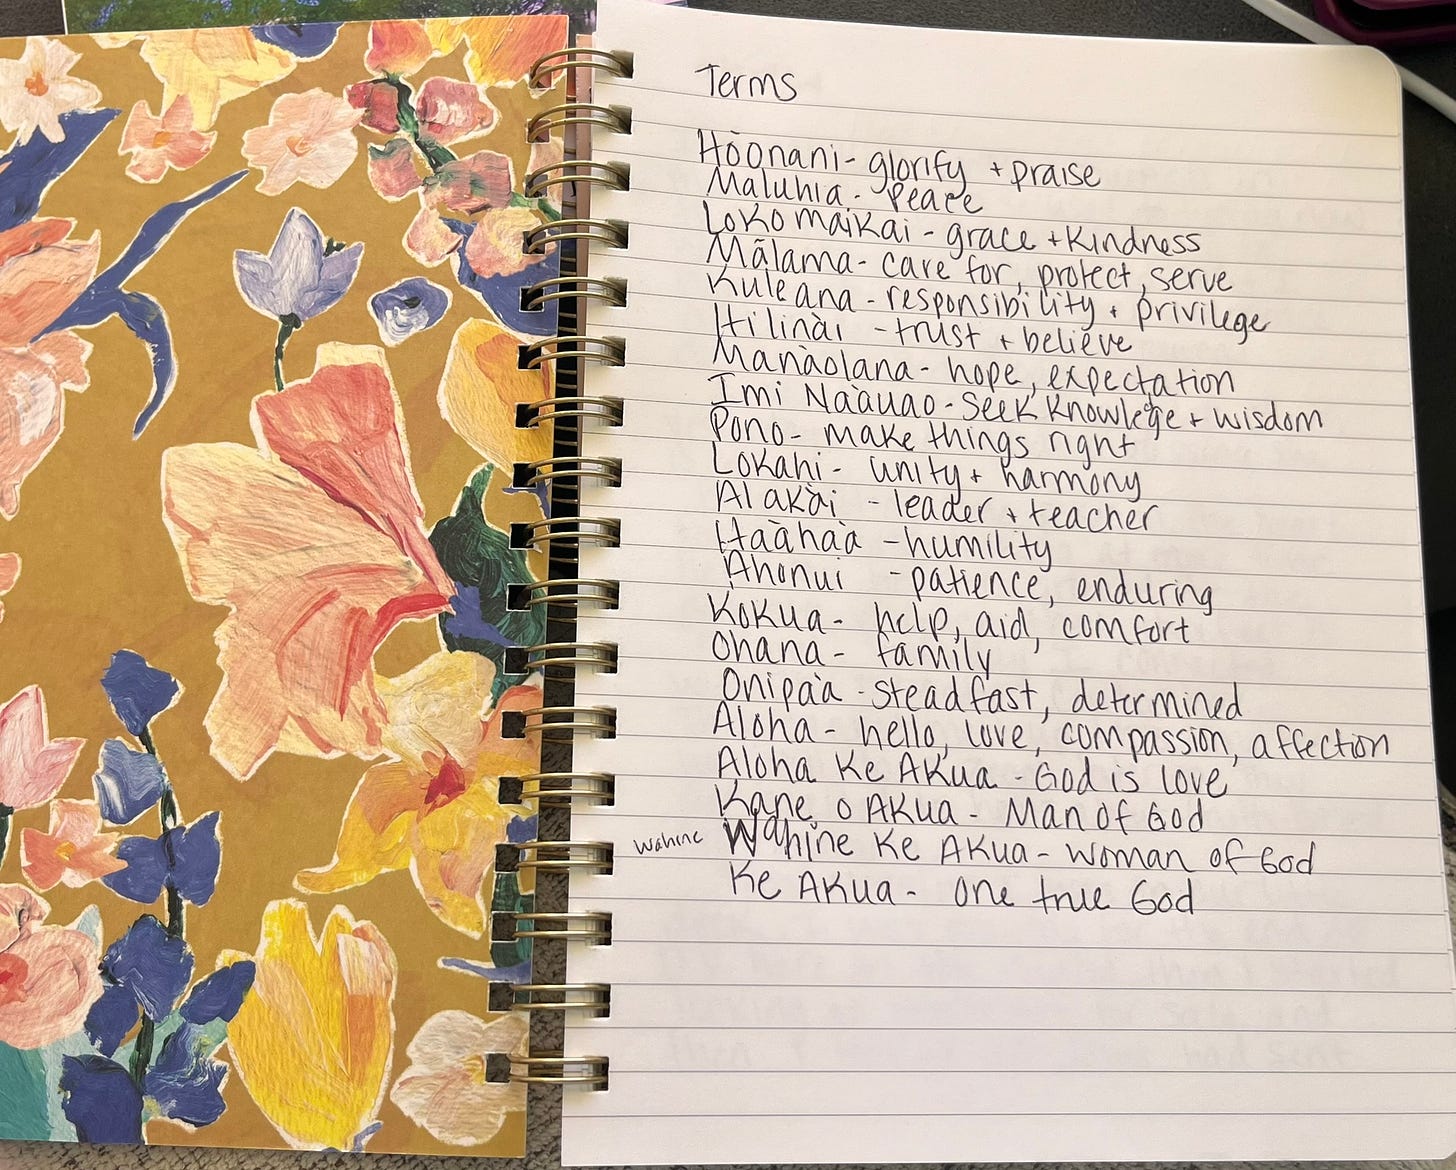 Terms
Hòonani- glorify + praise
Maluhia - Peace
Lokomaikai - grace + kindness
Mālama - care for, protect, serve
Kuleana - responsibility + privilege
Hilinài - trust + believe
Manàolana - hope, expectation
Imi Nàauao - Seek knowlege + wisdom
Pono - make things right
Lokahi - unity + harmony
Alakài - leader + teacher
Haàhaà - humility
Ahonui - patience, enduring
Kokua - help, aid, comfort
Ohana - family
Onipàa - steadfast, determined
Aloha - hello, love, compassion, affection
Aloha Ke Akua - God is love
Kane o Akua - Man of God
wahine Wahine Ke Akua - woman of God
Ke Akua - one true God